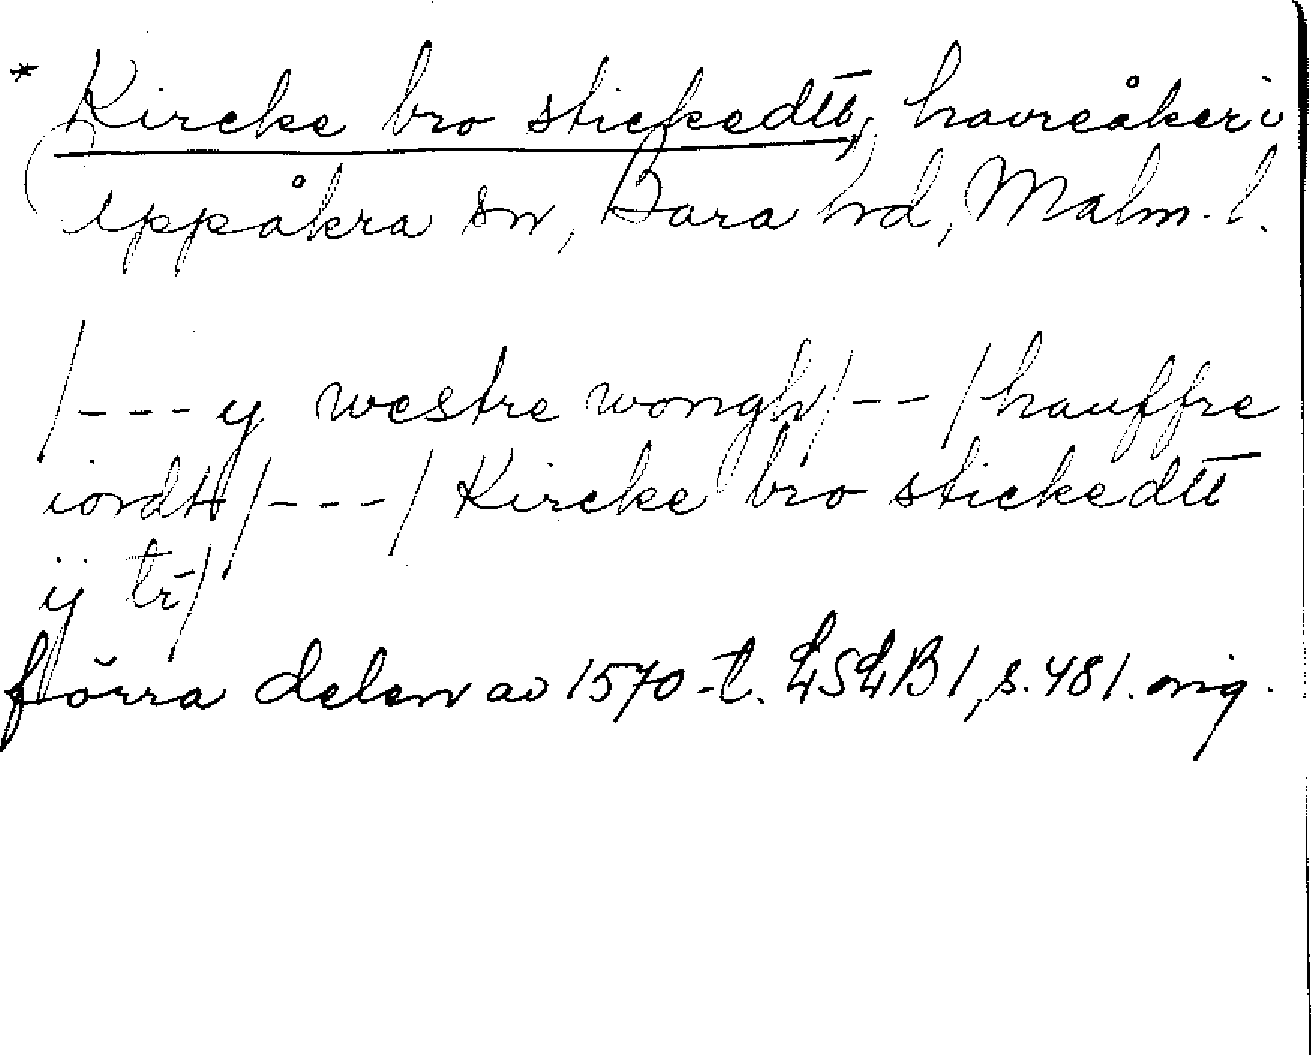 * Kircke bro stickedtt, havreåker i
Uppåkra sn, Bara hd, Malm. l.
/---y westre wongh/--/hauffre
iordtt/---/Kircke bro stickedtt
ij tr̄/
förra delen av 1570-t. LSLB 1, s. 481. orig.